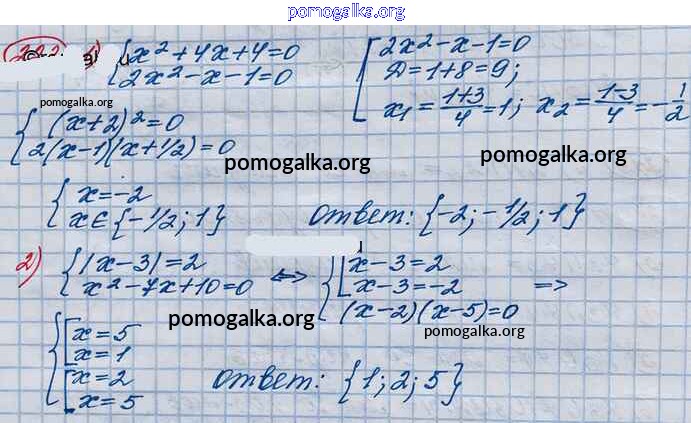 pomogalka.org
1) { x² + 4x + 4 = 0
2x² - x - 1 = 0
[ 2x² - x - 1 = 0
Д = 1 + 8 = 9;
x₁ = (1+3)/4 = 1; x₂ = (1-3)/4 = -1/2
pomogalka.org
{ (x+2)² = 0
2(x-1)(x+1/2) = 0
pomogalka.org
pomogalka.org
{ x = -2
x ∈ {-1/2; 1}
ответ: {-2; -1/2; 1}
2) { |x-3| = 2
x² - 7x + 10 = 0
⇔ { [ x-3 = 2
x-3 = -2
(x-2)(x-5) = 0
⇒
pomogalka.org
pomogalka.org
{ [ x = 5
x = 1
[ x = 2
x = 5
ответ: {1; 2; 5}